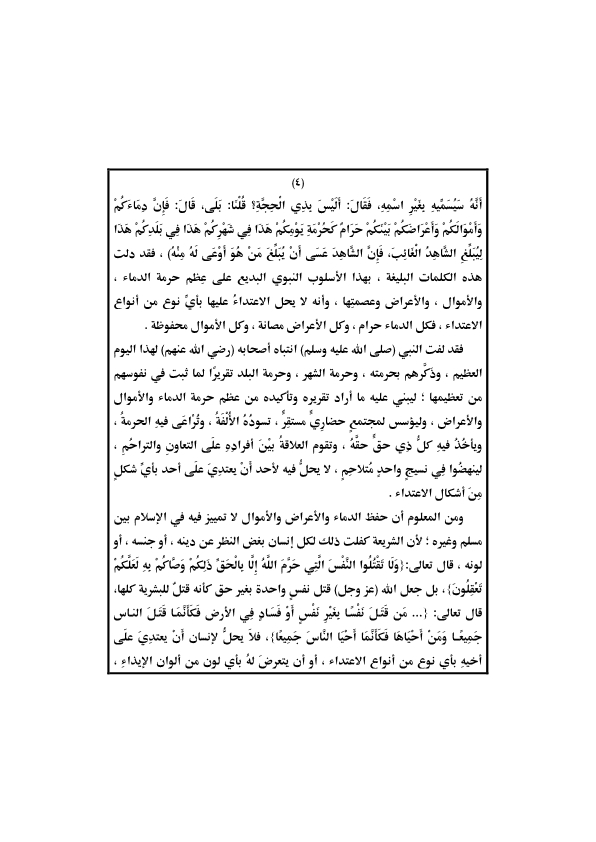 (٤)
أَنَّهُ سَيُسَمِّيهِ بِغَيْرِ اسْمِهِ، فَقَالَ: أَلَيْسَ بِذِي الْحِجَّةِ؟ قُلْنَا: بَلَى، قَالَ: فَإِنَّ دِمَاءَكُمْ
وَأَمْوَالَكُمْ وَأَعْرَاضَكُمْ بَيْنَكُمْ حَرَامٌ كَحُرْمَةِ يَوْمِكُمْ هَذَا فِي شَهْرِكُمْ هَذَا فِي بَلَدِكُمْ هَذَا
لِيُبَلِّغِ الشَّاهِدُ الْغَائِبَ، فَإِنَّ الشَّاهِدَ عَسَى أَنْ يُبَلِّغَ مَنْ هُوَ أَوْعَى لَهُ مِنْهُ) ، فقد دلت
هذه الكلمات البليغة ، بهذا الأسلوب النبوي البديع على عِظم حرمة الدماء ،
والأموال ، والأعراض وعصمتِها ، وأنه لا يحل الاعتداءُ عليها بأيِّ نوع من أنواع
الاعتداء ، فكل الدماء حرام ، وكل الأعراض مصانة ، وكل الأموال محفوظة .
فقد لفت النبي (صلى الله عليه وسلم) انتباه أصحابه (رضي الله عنهم) لهذا اليوم
العظيم ، وذكَّرهم بحرمته ، وحرمة الشهر ، وحرمة البلد تقريرًا لما ثبت في نفوسهم
من تعظيمها ؛ ليبني عليه ما أراد تقريره وتأكيده من عظم حرمة الدماء والأموال
والأعراض ، وليؤسس لمجتمعٍ حضاريٍّ مستقِرٍّ ، تسودُهُ الأُلْفَةُ ، وتُراعَى فيهِ الحرمةُ ،
ويأخُذُ فيهِ كلُّ ذِي حقٍّ حقَّهُ ، وتقوم العلاقةُ بيْنَ أفرادِهِ علَى التعاونِ والتراحُمِ ،
لينهضُوا فِي نسيجٍ واحدٍ مُتلاحِمٍ ، لا يحلُّ فيه لأحد أنْ يعتدِيَ علَى أحد بأيِّ شكلٍ
مِنَ أشكال الاعتداء .
ومن المعلوم أن حفظ الدماء والأعراض والأموال لا تمييز فيه في الإسلام بين
مسلم وغيره ؛ لأن الشريعة كفلت ذلك لكل إنسان بغض النظر عن دينه ، أو جنسه ، أو
لونه ، قال تعالى:{وَلَا تَقْتُلُوا النَّفْسَ الَّتِي حَرَّمَ اللَّهُ إِلَّا بِالْحَقِّ ذَلِكُمْ وَصَّاكُمْ بِهِ لَعَلَّكُمْ
تَعْقِلُونَ}، بل جعل الله (عز وجل) قتل نفسٍ واحدة بغير حق كأنه قتلٌ للبشرية كلها،
قال تعالى: {... مَن قَتَلَ نَفْسًا بِغَيْرِ نَفْسٍ أَوْ فَسَادٍ فِي الأرضِ فَكَأَنَّمَا قَتَلَ الناس
جَمِيعًا وَمَنْ أَحْيَاهَا فَكَأَنَّمَا أَحْيَا النَّاسَ جَمِيعًا}، فلاَ يحلُّ لإنسان أنْ يعتدِيَ علَى
أخيهِ بأي نوع من أنواع الاعتداء ، أو أن يتعرضَ لهُ بأي لون من ألوان الإيذاءِ ،